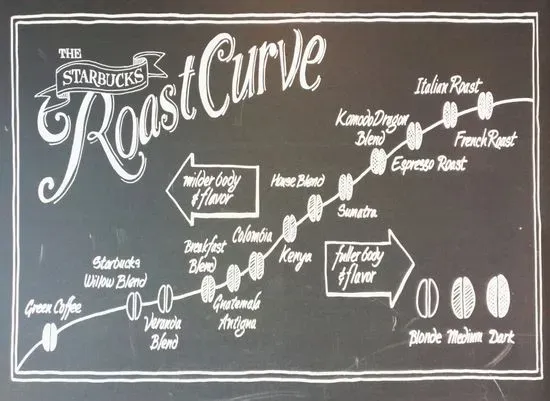 THE
STARBUCKS
Roast Curve
Italian Roast
Komodo Dragon
Blend
French Roast
Espresso Roast
milder body
& flavor
House Blend
Sumatra
Starbucks
Willow Blend
Breakfast
Blend
Colombia
Kenya
fuller body
& flavor
Green Coffee
Veranda
Blend
Guatemala
Antigua
Blonde Medium Dark